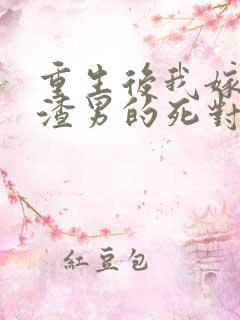 重生後我嫁
渣男的死對
紅豆包